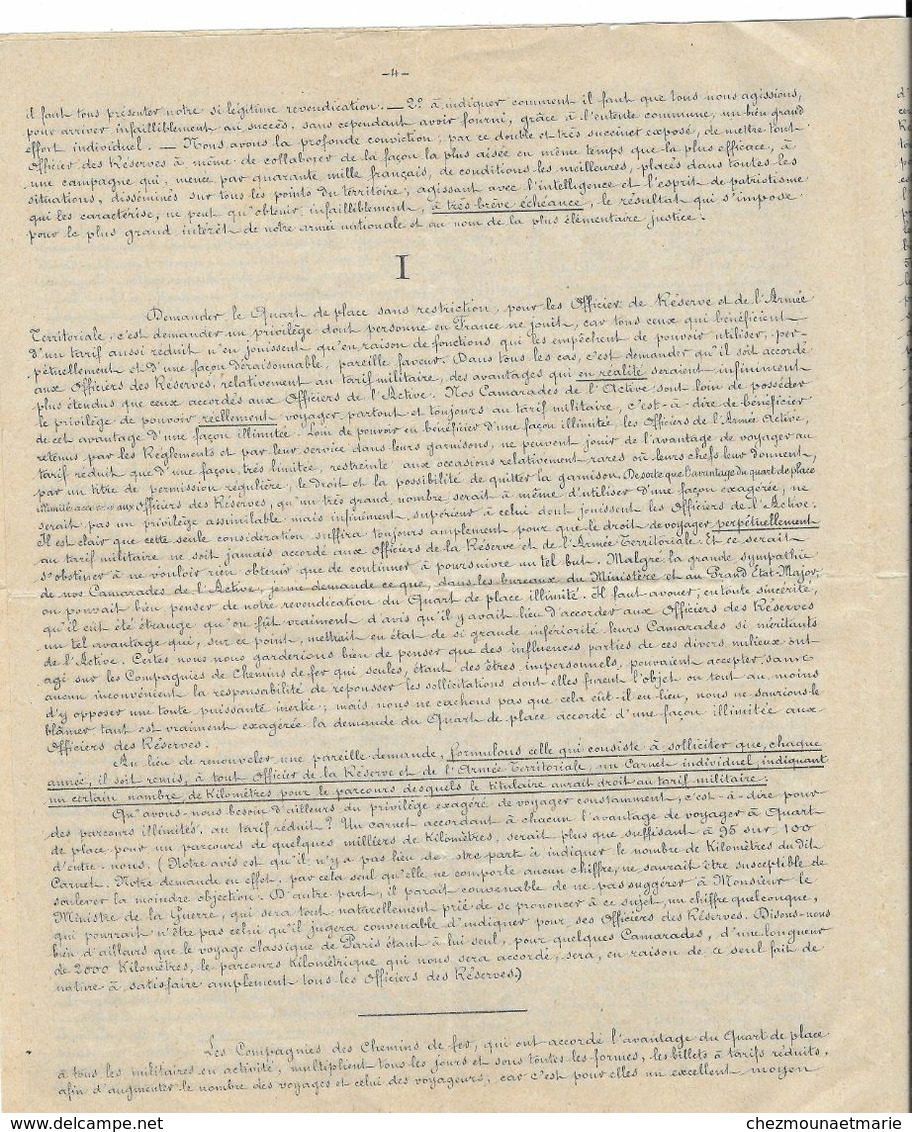 -4-
il faut tous présenter notre si légitime revendication. — 2º à indiquer comment il faut que tous nous agissions,
pour arriver infailliblement au succès, sans cependant avoir fourni, grâce à l'entente commune, un bien grand
effort individuel. — Nous avons la profonde conviction, par ce double et très succinct exposé, de mettre tout
Officier des Réserves à même de collaborer de la façon la plus aisée en même temps que la plus efficace, à
une campagne qui, menée par quarante mille français, de conditions les meilleures, placés dans toutes les
situations, disséminés sur tous les points du territoire; agissant avec l'intelligence et l'esprit de patriotisme
qui les caractérise, ne peut qu'obtenir infailliblement, à très brève échéance, le résultat qui s'impose
pour le plus grand intérêt de notre armée nationale et au nom de la plus élémentaire justice.
I
Demander le Quart de place sans restriction, pour les Officier de Réserve et de l'Armée
Territoriale, c'est demander un privilège dont personne en France ne jouit, car tous ceux qui bénéficient
d'un tarif aussi réduit n'en jouissent qu'en raison de fonctions qui les empêchent de pouvoir utiliser, per-
pétuellement et d'une façon déraisonnable, pareille faveur. Dans tous les cas, c'est demander qu'il soit accordé
aux Officiers des Réserves, relativement au tarif militaire, des avantages qui en réalité seraient infiniment
plus étendus que ceux accordés aux Officiers de l'Active. Nos Camarades de l'Active sont loin de posséder
le privilège de pouvoir réellement voyager partout et toujours au tarif militaire, c'est-à-dire de bénéficier
de cet avantage d'une façon illimitée. Loin de pouvoir en bénéficier d'une façon illimitée, les Officiers de l'Armée Active,
retenus par les Règlements et par leur service dans leurs garnisons, ne peuvent jouir de l'avantage de voyager au
tarif réduit que d'une façon très limitée, restreinte aux occasions relativement rares où leurs chefs leur donnent,
par un titre de permission régulière, le droit et la possibilité de quitter la garnison. De sorte que l'avantage du quart de place
illimité accordé aux Officiers des Réserves, qu'un très grand nombre serait à même d'utiliser d'une façon exagérée, ne
serait pas un privilège assimilable mais infiniment supérieur à celui dont jouissent les Officiers de l'Active.
Il est clair que cette seule considération suffira toujours amplement pour que le droit de voyager perpétuellement
au tarif militaire ne soit jamais accordé aux Officiers de la Réserve et de l'Armée Territoriale. Et ce serait
s'obstiner à ne vouloir rien obtenir que de continuer à poursuivre un tel but. Malgré la grande sympathie
de nos Camarades de l'Active, je me demande ce que, dans les bureaux du Ministère et au Grand Etat-Major,
on pouvait bien penser de notre revendication du Quart de place illimité. Il faut avouer, en toute sincérité,
qu'il eût été étrange qu'on fût vraiment d'avis qu'il y avait lieu d'accorder aux Officiers des Réserves
un tel avantage qui, sur ce point, mettrait en état de si grande infériorité leurs Camarades si méritants
de l'Active. Certes nous nous garderions bien de penser que des influences parties de ces divers milieux ont
agi sur les Compagnies de Chemins de fer qui seules, étant des êtres impersonnels, pouvaient accepter sans
aucun inconvénient la responsabilité de repousser les sollicitations dont elles furent l'objet ou tout au moins
d'y opposer une toute puissante inertie; mais nous ne cachons pas que cela eût-il eu lieu, nous ne saurions le
blâmer tant est vraiment exagérée la demande du Quart de place accordé d'une façon illimitée aux
Officiers des Réserves.
Au lieu de renouveler une pareille demande, formulons celle qui consiste à solliciter que, chaque
année, il soit remis, à tout Officier de la Réserve et de l'Armée Territoriale, un Carnet individuel, indiquant
un certain nombre de Kilomètres pour le parcours desquels le titulaire aurait droit au tarif militaire.
Qu'avons-nous besoin d'ailleurs du privilège exagéré de voyager constamment, c'est-à-dire pour
des parcours illimités, au tarif réduit? Un carnet accordant à chacun l'avantage de voyager à Quart
de place pour un parcours de quelques milliers de Kilomètres, serait plus que suffisant à 95 sur 100
d'entre-nous. (Notre avis est qu'il n'y a pas lieu de notre part à indiquer le nombre de Kilomètres du dit
Carnet. Notre demande en effet, par cela seul qu'elle ne comporte aucun chiffre, ne saurait être susceptible de
soulever la moindre objection. D'autre part, il paraît convenable de ne pas suggérer à Monsieur le
Ministre de la Guerre, qui sera tout naturellement prié de se prononcer à ce sujet, un chiffre quelconque,
qui pourrait n'être pas celui qu'il jugera convenable d'indiquer pour ses Officiers des Réserves. Disons-nous
bien d'ailleurs que le voyage classique de Paris étant à lui seul, pour quelques Camarades, d'une longueur
de 2000 Kilomètres, le parcours Kilométrique qui nous sera accordé, sera, en raison de ce seul fait de
nature à satisfaire amplement tous les Officiers des Réserves.)
Les Compagnies des Chemins de fer, qui ont accordé l'avantage du Quart de place
à tous les militaires en activité, multiplient tous les jours et sous toutes les formes, les billets à tarifs réduits,
afin d'augmenter le nombre des voyages et celui des voyageurs; car c'est pour elles un excellent moyen
chezmounaetmarie